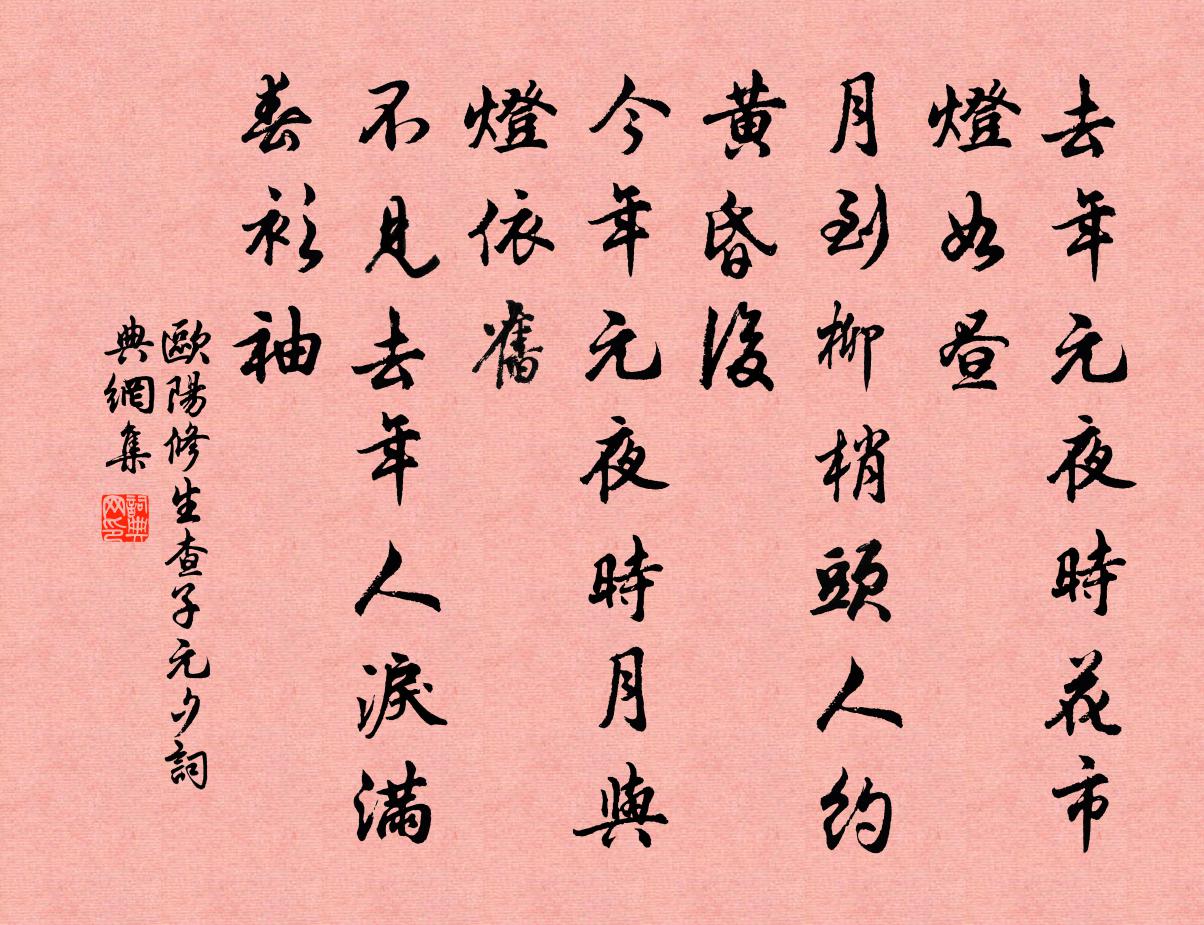 去年元夜時花市
燈如晝
月到柳梢頭人約
黃昏後
今年元夜時月與
燈依舊
不見去年人淚滿
春衫袖
歐陽修生查子元夕詞
典網集
詞典网印